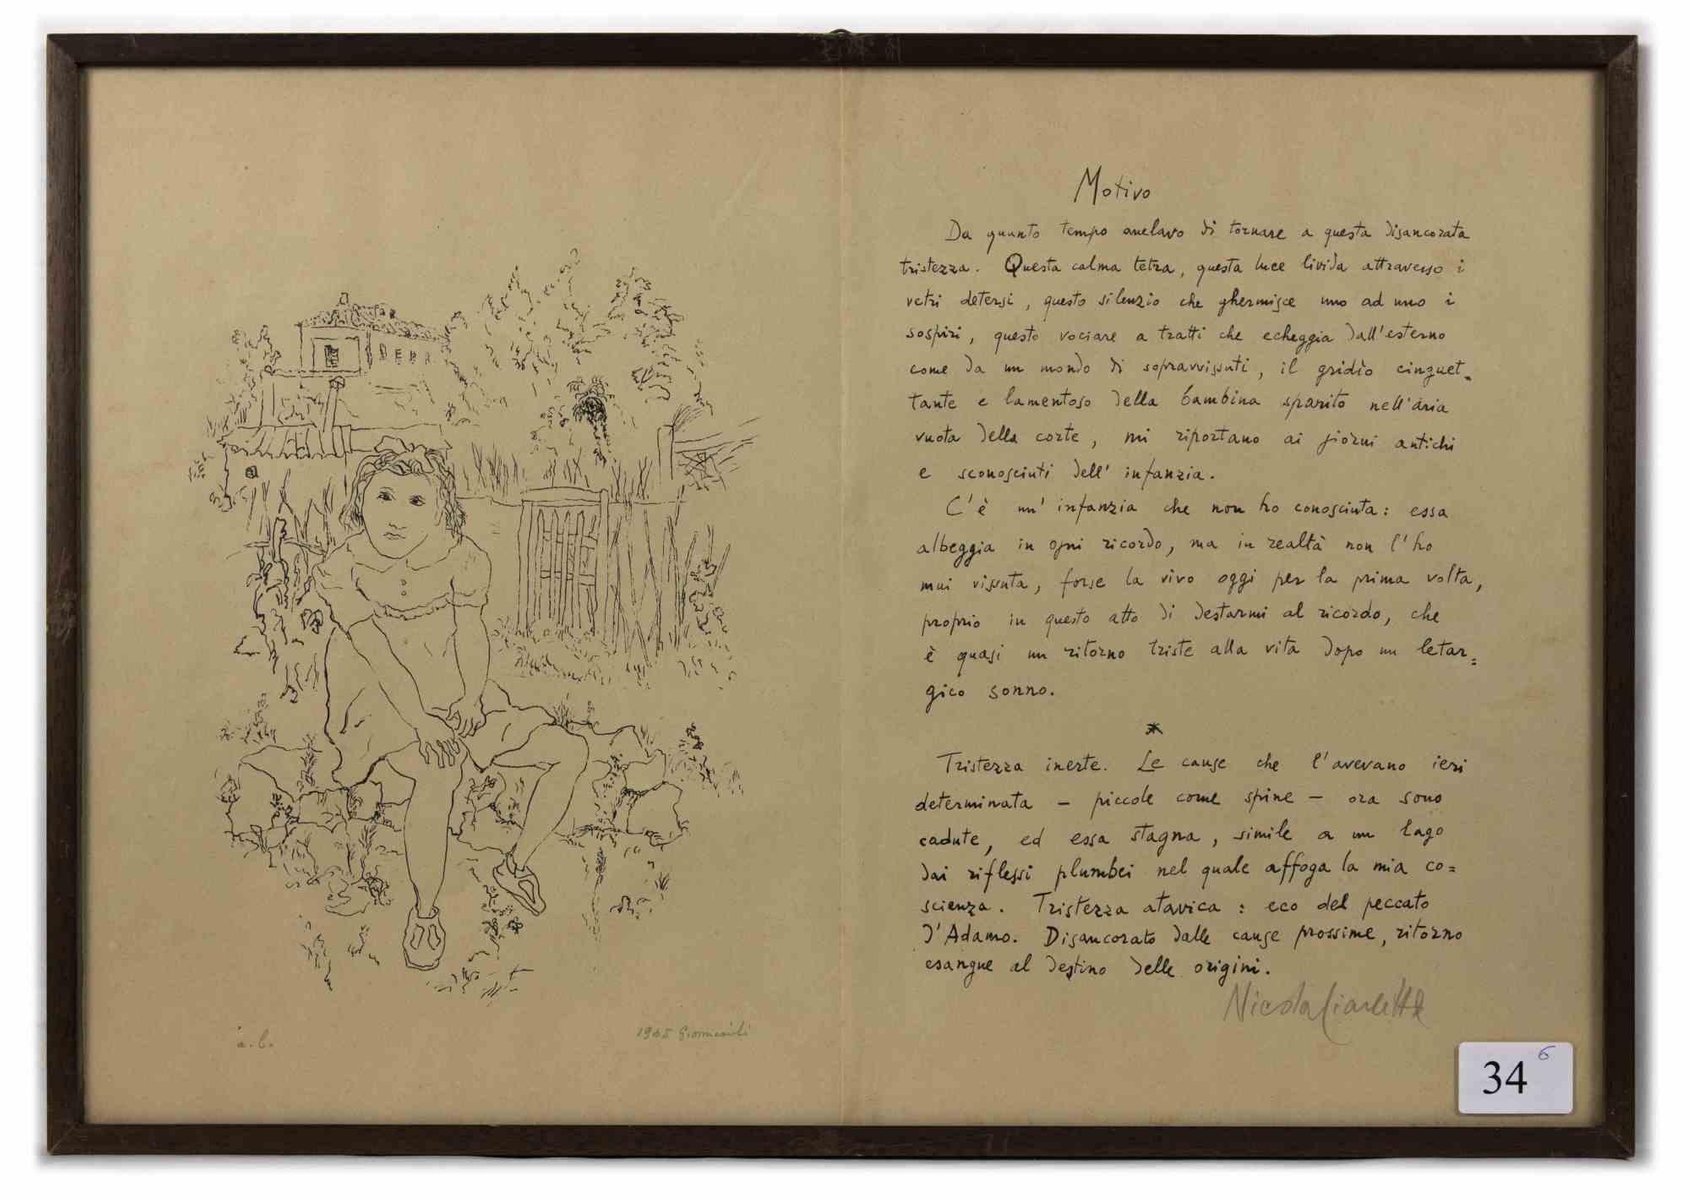 Motivo
Da quanto tempo anelavo di tornare a questa disancorata
tristezza. Questa calma tetra, questa luce livida attraverso i
vetri detersi, questo silenzio che ghermisce uno ad uno i
sospiri, questo vociare a tratti che echeggia dall'esterno
come da un mondo di sopravvissuti, il gridio cinguet-
tante e lamentoso della bambina sparito nell'aria
vuota della corte, mi riportano ai giorni antichi
e sconosciuti dell'infanzia.
C'è un'infanzia che non ho conosciuta: essa
albeggia in ogni ricordo, ma in realtà non l'ho
mai vissuta, forse la vivo oggi per la prima volta,
proprio in questo atto di destarmi al ricordo, che
è quasi un ritorno triste alla vita dopo un letar=
gico sonno.
*
Tristezza inerte. Le cause che l'avevano ieri
determinata - piccole come spine - ora sono
cadute, ed essa stagna, simile a un lago
dai riflessi plumbei nel quale affoga la mia co=
scienza. Tristezza atavica: eco del peccato
d'Adamo. Disancorato dalle cause prossime, ritorno
esangue al destino delle origini.
Nicola Ciarletta
1945
34
6